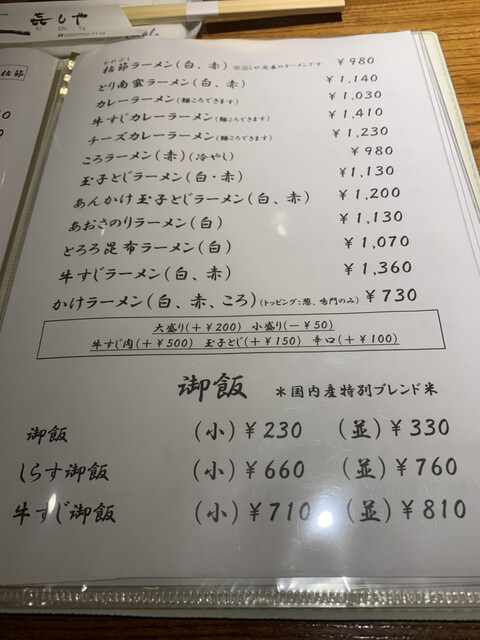 㐂しや
枯節
枯節ラーメン(白、赤) ¥980
とり南蛮ラーメン(白、赤) ¥1,140
カレーラーメン(麺ころできます) ¥1,030
牛すじカレーラーメン(麺ころできます) ¥1,410
チーズカレーラーメン(麺ころできます) ¥1,230
ころラーメン(赤)(冷やし) ¥980
玉子とじラーメン(白・赤) ¥1,130
あんかけ玉子とじラーメン(白、赤) ¥1,200
あおさのりラーメン(白) ¥1,130
とろろ昆布ラーメン(白) ¥1,070
牛すじラーメン(白、赤) ¥1,360
かけラーメン(白、赤、ころ)(トッピング:葱、鳴門のみ) ¥730
大盛り(+¥200) 小盛り(−¥50)
牛すじ肉(+¥500) 玉子とじ(+¥150) 辛口(+¥100)
御飯 *国内産特別ブレンド米
御飯 (小)¥230 (並)¥330
しらす御飯 (小)¥660 (並)¥760
牛すじ御飯 (小)¥710 (並)¥810